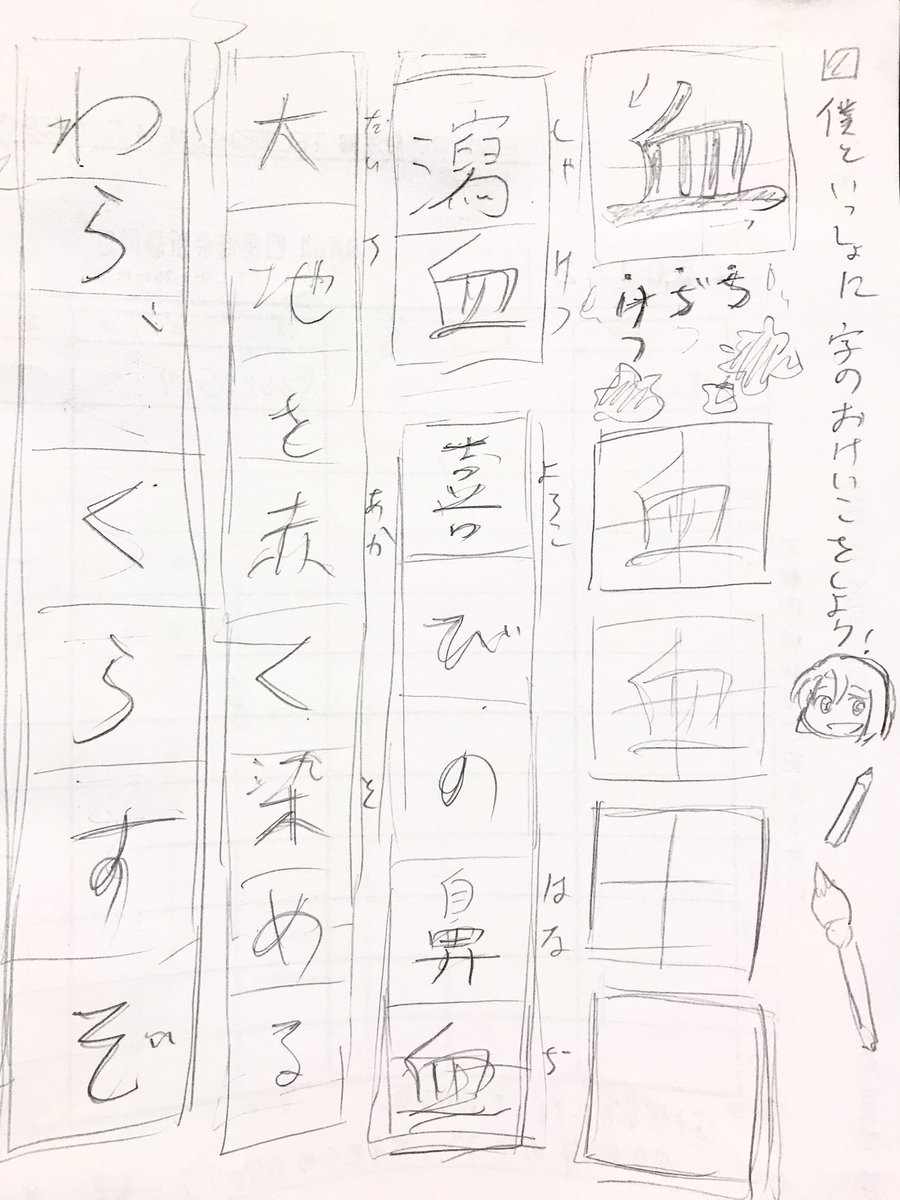 2 僕といっしょに 字のおけいこをしよう!
血
ち
ぢ
けつ
血
血
しゃけつ
瀉血
よろこ はな ぢ
喜びの鼻血
だい ち あか そ
大地を赤く染める
わら、ぐらすぞ